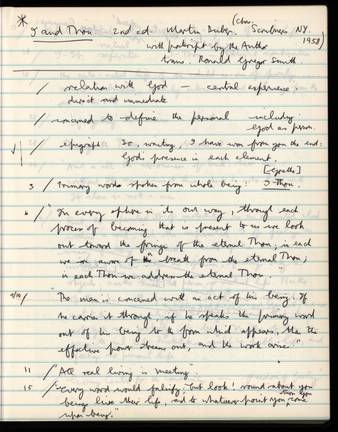 * I and Thou 2nd ed. Martin Buber. (Chas. Scribners NY 1958)
with postscript by the Author
trans. Ronald Gregor Smith
/ relation with God — central experience.
direct and immediate
/ concerned to define the personal including
God as person.
/ epigraph So, waiting, I have won from you the end:
God's presence in each element.
[Goethe]
3 / Primary words spoken from whole being: I-Thou.
6 / "In every sphere in its own way, through each
process of becoming that is present to us we look
out toward the fringe of the eternal Thou; in each
we are aware of a breath from the eternal Thou;
in each Thou we address the eternal Thou."
/ "The man is concerned with an act of his being. If
he carries it through, if he speaks the primary word
out of his being to the form which appears, then the
effective power streams out, and the work arises."
11 / "All real living is meeting."
15 / "Every word would falsify; but look! round about you
beings live their life, and to whatever point you turn you come
upon being."